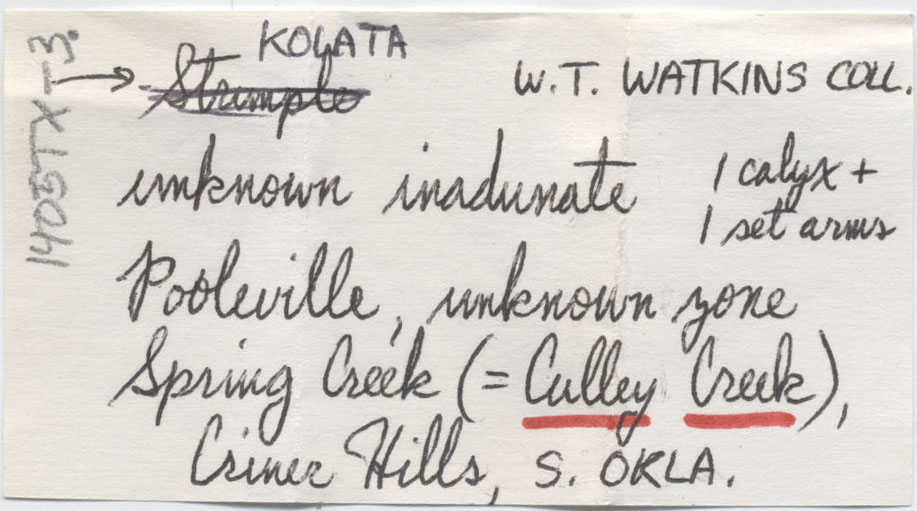 KOLATA
→ Strimple
W.T. WATKINS COLL.
unknown inadunate
1 calyx +
1 set arms
Pooleville, unknown zone
Spring Creek (= Culley Creek),
Criner Hills, S. OKLA.
1405TX T3.